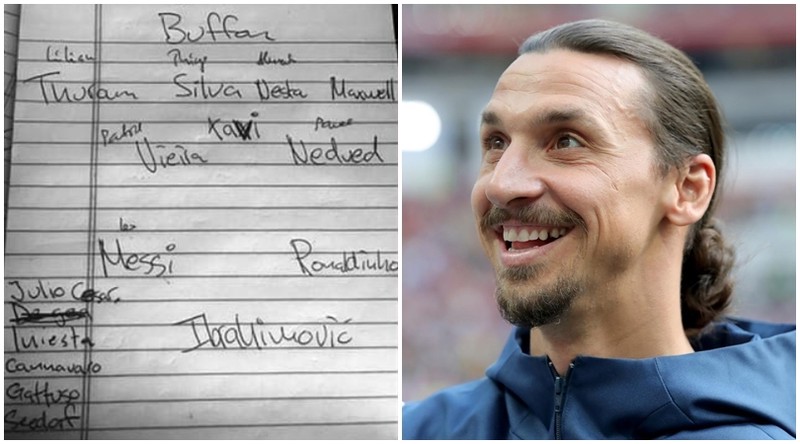 Buffon
Lilian Thiago
Thuram Silva Nesta Maxwell
Patrick Xavi Pavel
Vieira Nedved
Leo
Messi Ronaldinho
Julio Cesar
Iniesta Ibrahimović
Cannavaro
Gattuso
Seedorf